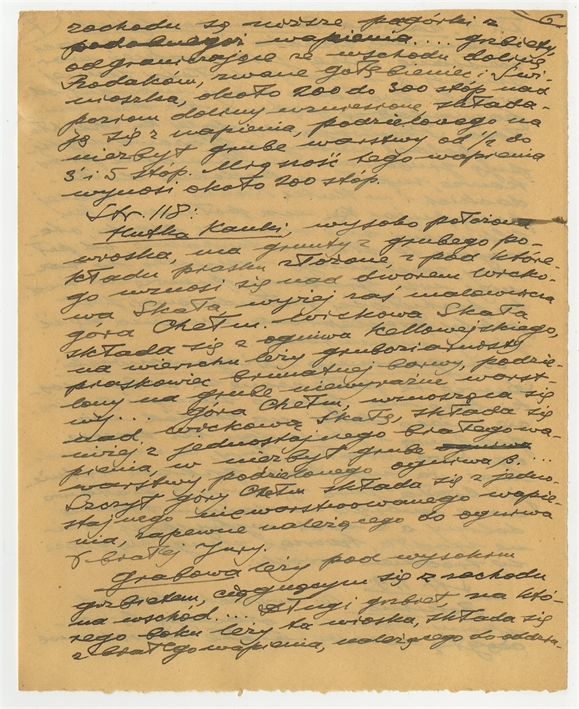 6
zachodu są niższe pagórki z
podobnegoż wapienia.... grzbiety,
odgraniczające ze wschodu dolinę
Rodaków, zwane Gołębieniec i Świ-
nioszka, około 200 do 300 stóp nad
poziom doliny wzniesione składa-
ją się z wapienia, podzielonego na
niezbyt grube warstwy od 1/2 do
3 i 5 stóp. Miąższość tego wapienia
wynosi około 200 stóp.
Str. 118:
Hutka Kanki, wysoko położona
wioska, ma grunty z grubego po-
kładu piasku złożone z pod które-
go wznosi się nad dworem Wicko-
wa Skała, wyżej zaś malownicza
góra Chełm. Wickowa Skała
składa się z ogniwa Kellowejskiego,
na wierzchu leży gruboziarnisty
piaskowiec brunatnej barwy, podzie-
lony na grube niewyraźne warst-
wy... Góra Chełm, wznosząca się
nad Wickową Skałę, składa się
niżej z jednostajnego białego wa-
pienia, w niezbyt grube ogniwa
warstwy podzielonego ogniwa β....
Szczyt góry Chełm składa się z jedno-
stajnego nieuwarstwowanego wapie-
nia, zapewne należącego do ogniwa
białej Jury.
Grabowa leży pod wysokim
grzbietem, ciągnącym się z zachodu
na wschód.... Długi grzbiet, na któ-
rego boku leży ta wioska, składa się
z białego wapienia, należącego do oddzia-